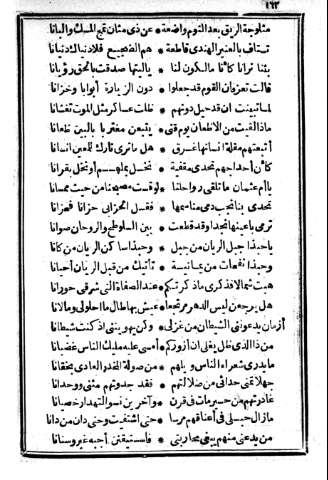 ١٦٣
مثلوجة الريق بعد النوم واضعة * عن ذى مثان تمج المسك والبانا
تستاف بالعنبر الهندى قاطعة * هم الضجيع فلا دنيا كدنيانا
بتنا ترانا كأنا مالكون لنا * ياليتها صدقت بالحق رؤيانا
قالت تعز فان القوم قد جعلوا * دون الزيارة أبوابا وخزانا
لما تبينت ان قد حيل دونهم * ظلت عساكر مثل الموت تغشانا
ماذا لقيت من الاظعان يوم قنى * يتبعن مغتربا بالبين ظعانا
أتبعتهم مقلة انسانها غرق * هل ماترى تارك للعين انسانا
كأن أحداجهم تحدى مقفية * نخل بملهم أو نخل بقرانا
يا أم عثمان ماتلقى رواحلنا * لو قست مصبحنا من حيث ممسانا
تخدى بنا نجب دمى مناسمها * نقل الحزابى حزانا فحزانا
ترمى بأعينها نجدا وقد قطعت * بين السلوطح والروحان صوانا
ياحبذا جبل الريان من جبل * وحبذا ساكن الريان من كانا
وحبذا نفحات من يمانية * تأتيك من قبل الريان أحيانا
هبت شمالا فذكرى ماذكرتكم * عند الصفاة التى شرقى حورانا
هل يرجعن وليس الدهر مرتجعا * عيش بها طال ما احلولى ومالانا
أزمان يدعوننى الشيطان من غزلى * وكن يهويننى اذ كنت شيطانا
من ذا الذى ظل يغلى ان أزوركم * أمسى عليه مليك الناس غضبانا
مايدرى شعراء الناس ويلهم * من صولة المخدر العادى بخفانا
جهلا تمنى حدائى من ضلالتهم * فقد حدوتهم مثنى ووحدانا
غادرتهم من حسير مات فى قرن * وآخرين نسوا التهدار خصيانا
مازال حبلى فى أعناقهم مرسا * حتى اشتفيت وحتى دان من دانا
من يدعنى منهم يبغى محاربتى * فاستيقنن أجبه غير وسنانا